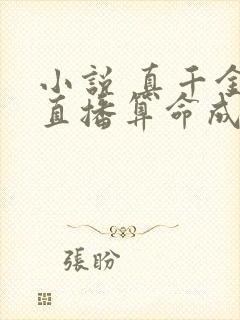 小说 真千金
直播算命成
張盼